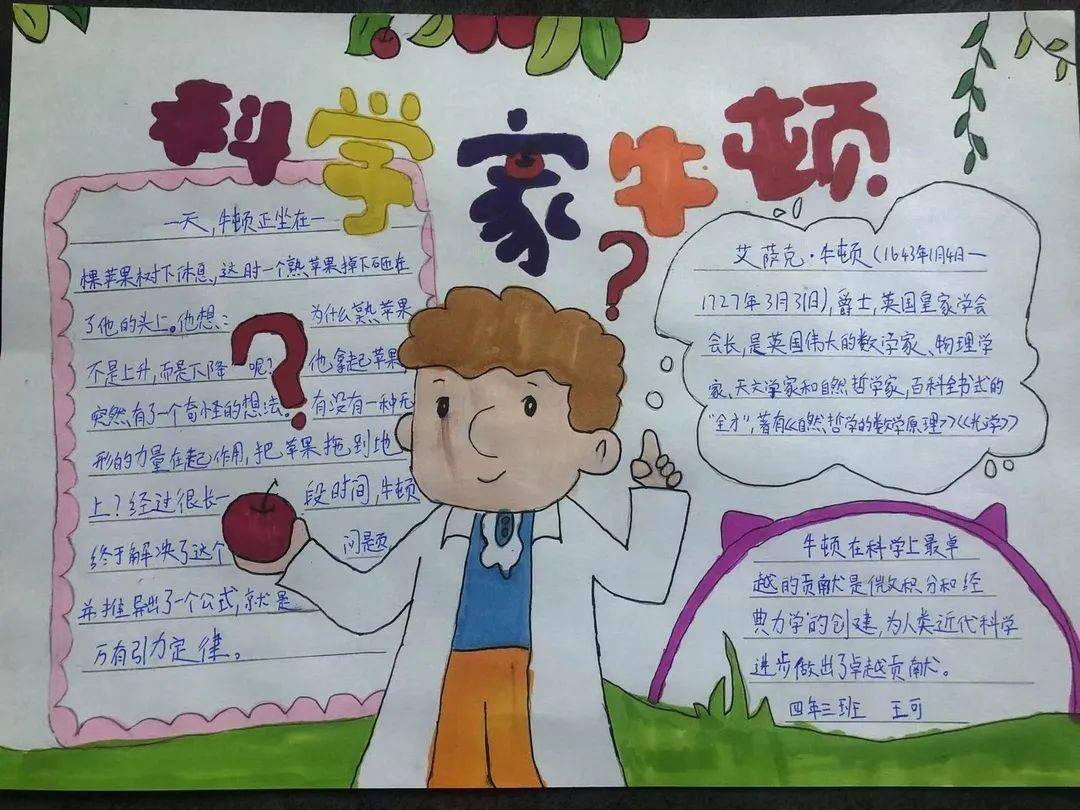 科学家牛顿
一天,牛顿正坐在一
棵苹果树下休息,这时一个熟苹果掉下砸在
了他的头上。他想: 为什么熟苹果
不是上升,而是下降 呢? 他拿起苹果
突然有了一个奇怪的想法。 有没有一种无
形的力量在起作用,把苹果拖到地
上?经过很长一 段时间,牛顿
终于解决了这个 问题
并推导出了一个公式,就是
万有引力定律。
艾萨克·牛顿(1643年1月4日—
1727年3月31日),爵士,英国皇家学会
会长,是英国伟大的数学家、物理学
家、天文学家和自然哲学家,百科全书式的
“全才”,著有《自然哲学的数学原理》《光学》
牛顿在科学上最卓
越的贡献是微积分和经
典力学的创建,为人类近代科学
进步做出了卓越贡献。
四年三班 王可